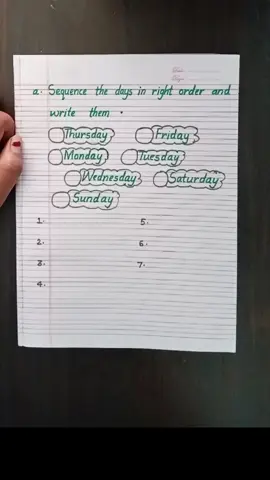 a. Sequence the days in right order and
write them .
Thursday Friday
Monday Tuesday
Wednesday Saturday
Sunday
1. 5.
2. 6.
3. 7.
4.